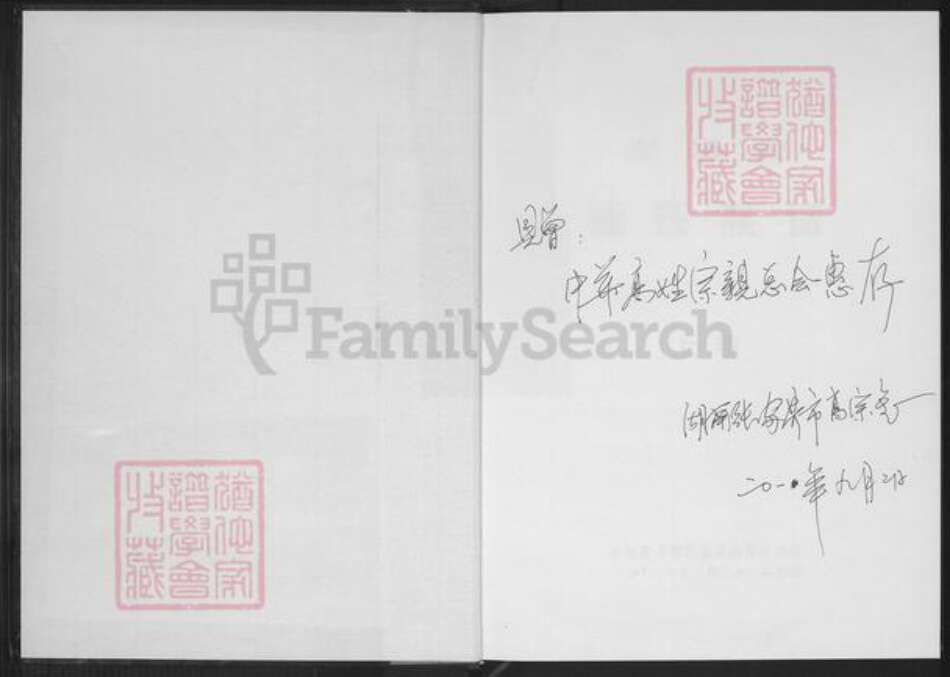 猶他家
譜學會
收藏
具贈：
中华高姓宗親总会惠存
湖南张家界市高宗
二〇一〇年九月
FamilySearch
猶他家
譜學會
收藏